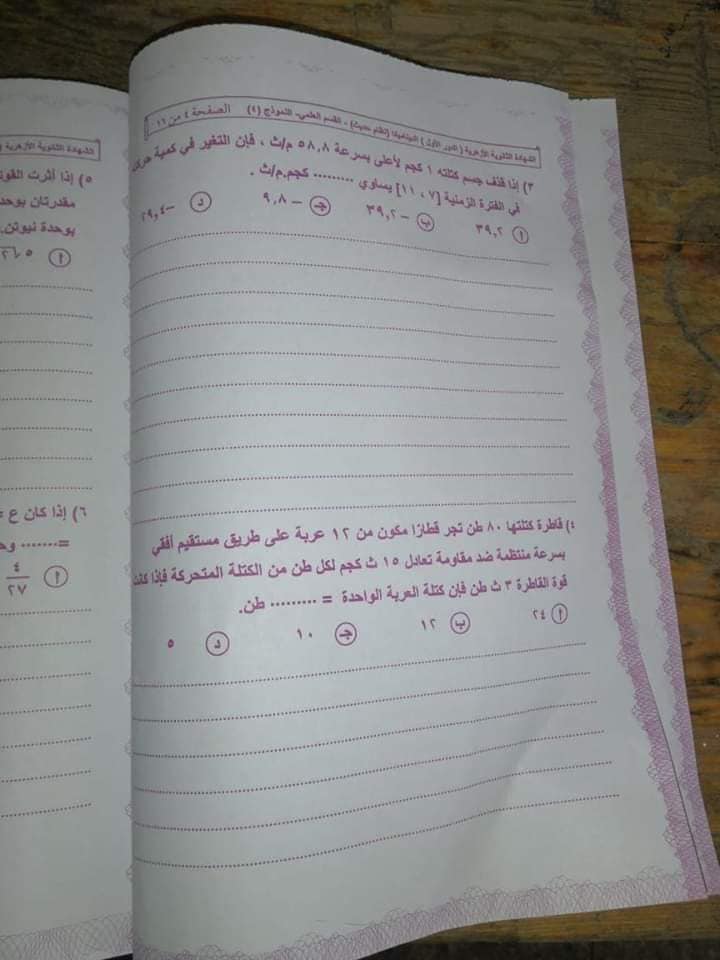 الشهادة الثانوية الأزهرية (الدور الأول) الديناميكا (نظام حديث) - القسم العلمي - النموذج (٤) الصفحة ٤ من ١٦
٣) إذا قذف جسم كتلته ١ كجم لأعلى بسرعة ٥٨,٨ م/ث ، فإن التغير في كمية
في الفترة الزمنية [٧ ، ١١] يساوي ......... كجم.م/ث .
أ ٣٩,٢ ب -٣٩,٢ جـ -٩,٨ د -٢٩,٤
٤) قاطرة كتلتها ٨٠ طن تجر قطارًا مكون من ١٢ عربة على طريق مستقيم أفقي
بسرعة منتظمة ضد مقاومة تعادل ١٥ ث كجم لكل طن من الكتلة المتحركة فإذا كانت
قوة القاطرة ٣ ث طن فإن كتلة العربة الواحدة = ......... طن.
أ ٢٤ ب ١٢ جـ ١٠ د ٥
الشهادة الثانوية الأزهرية (
٥) إذا أثرت القوة
مقدرتان بوحدة
بوحدة نيوتن.
أ
٦) إذا كان ع =
=....... وحـ
أ ٤/٢٧